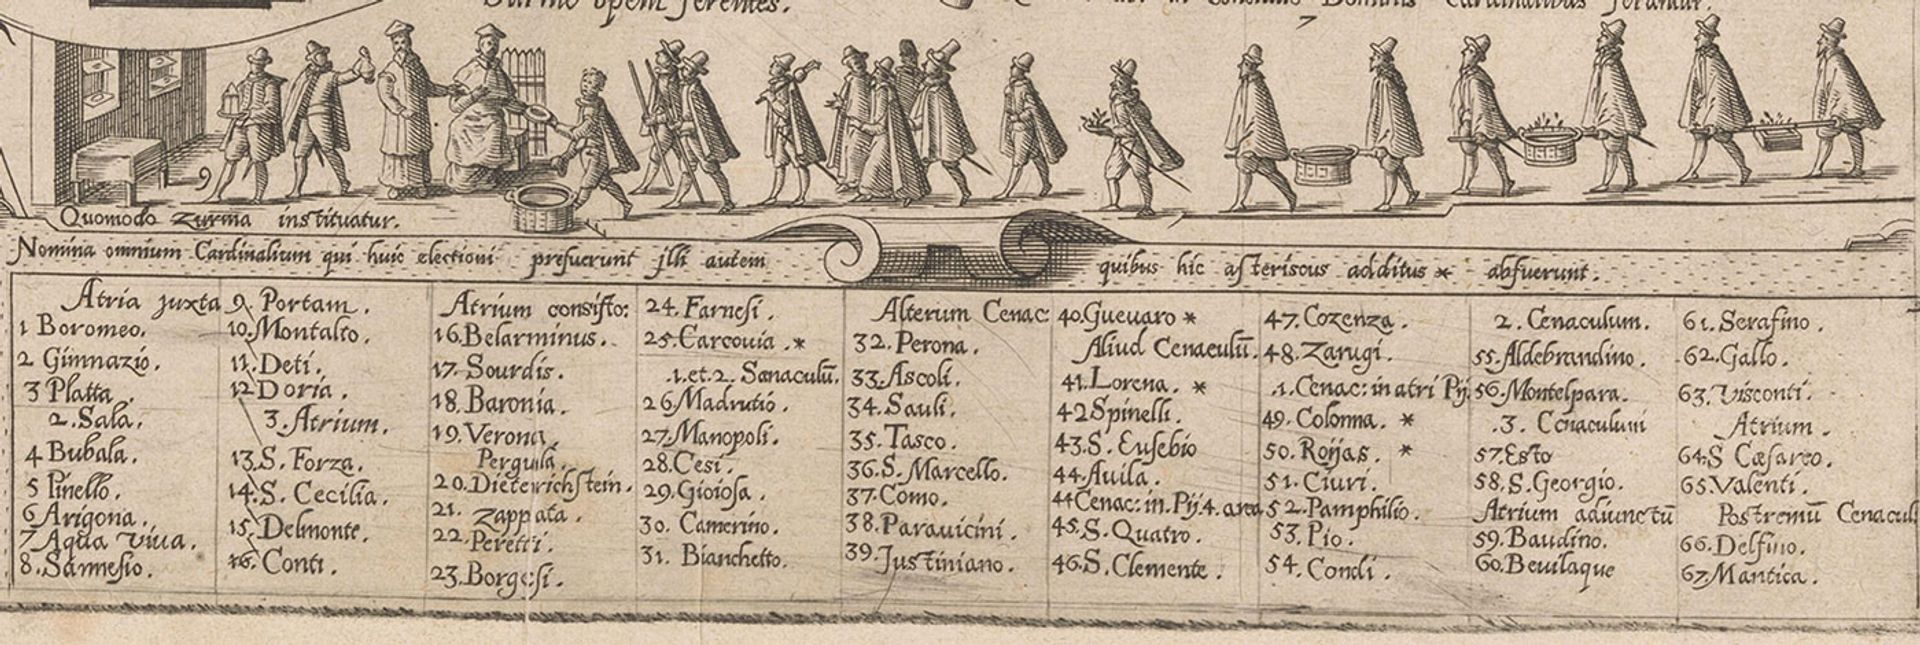 opem ferentes.
Dominis Cardinalibus
7
9
Quomodo Zurma instituatur.
Nomina omnium Cardinalium qui huic electioni presuerunt illi autem quibus hic asteriscus additus * absuerunt.
Atria juxta
1 Boromeo.
2 Gimnazio.
3 Platta.
2. Sala.
4 Bubala.
5 Pinello.
6 Arigona.
7 Aqua viva.
8. Sannesio.
9. Portam.
10. Montalto.
11. Deti.
12 Doria.
3. Atrium.
13. S. Forza.
14. S. Cecilia.
15. Delmonte.
16. Conti.
Atrium consisto:
16. Belarminus.
17. Sourdis.
18. Baronia.
19. Verona.
Pergula.
20. Dieterichstein.
21. Zappata.
22. Peretti.
23. Borgesi.
24. Farnesi.
25. Carcovia. *
.1. et. 2. Senaculũ.
26. Madrutio.
27. Manopoli.
28. Cesi.
29. Gioiosa.
30. Camerino.
31. Bianchetto.
Alterum Cenac:
32. Perona.
33. Ascoli.
34. Sauli.
35. Tasco.
36. S. Marcello.
37. Como.
38. Paravicini.
39. Justiniano.
40. Guevaro *
Aliud Cenaculũ.
41. Lorena. *
42 Spinelli.
43. S. Eusebio
44. Avila.
44 Cenac: in. Pij. 4. area
45. S. Quatro.
46. S. Clemente.
47. Cozenza.
48. Zarugi.
.1. Cenac: in atri Pij.
49. Colonna. *
50. Roijas. *
51. Ciuri.
52. Pamphilio.
53. Pio.
54. Condi.
2. Cenaculum.
55. Aldebrandino.
56. Montelpara.
.3. Cenaculum
57. Esto
58. S. Georgio.
Atrium adiunctũ
59. Baudino.
60. Bevilaque
61. Serafino.
62. Gallo.
63. Visconti.
Atrium.
64. S Cæsareo.
65. Valenti.
Postremũ Cenacul
66. Delfino.
67. Mantica.